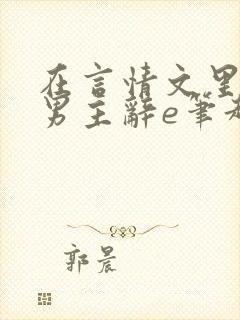 在言情文里
男主辞e筆
郭晨